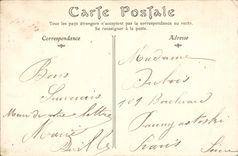 Carte Postale
Tous les pays étrangers n'acceptent pas la correspondance au recto.
Se renseigner à la poste.
Correspondance
Adresse
Bons
Souvenirs
lettre
Marie
Madame
Dubois
109 Boulevard
Poniatowski
Paris